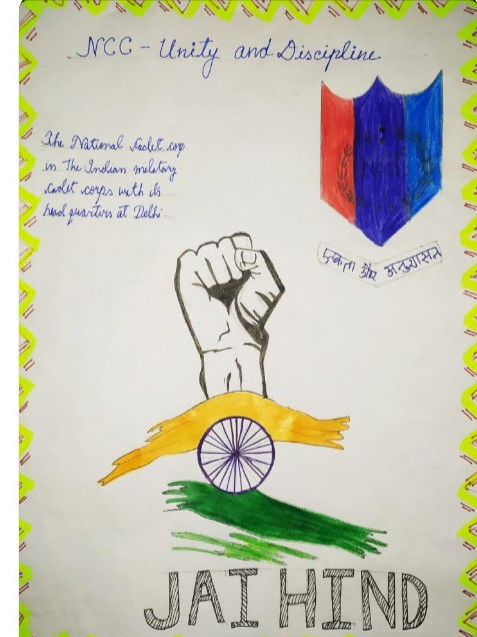 NCC - Unity and Discipline
The National Cadet corp
in The Indian military
cadet corps with its
head quarters at Delhi
NCC
एकता और अनुशासन
JAI HIND